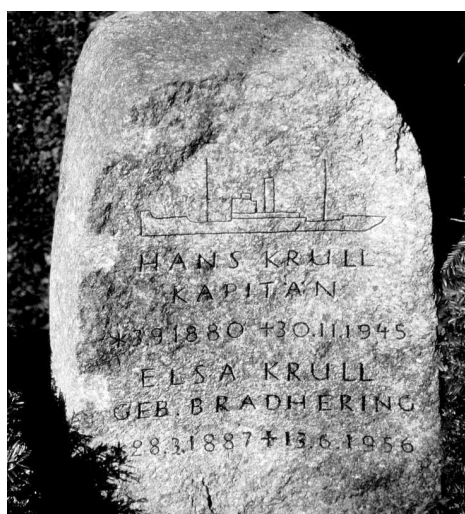 HANS KRULL
KAPITÄN
*3.9.1880 †30.11.1945
ELSA KRULL
GEB. BRADHERING
*28.3.1887 †13.6.1956